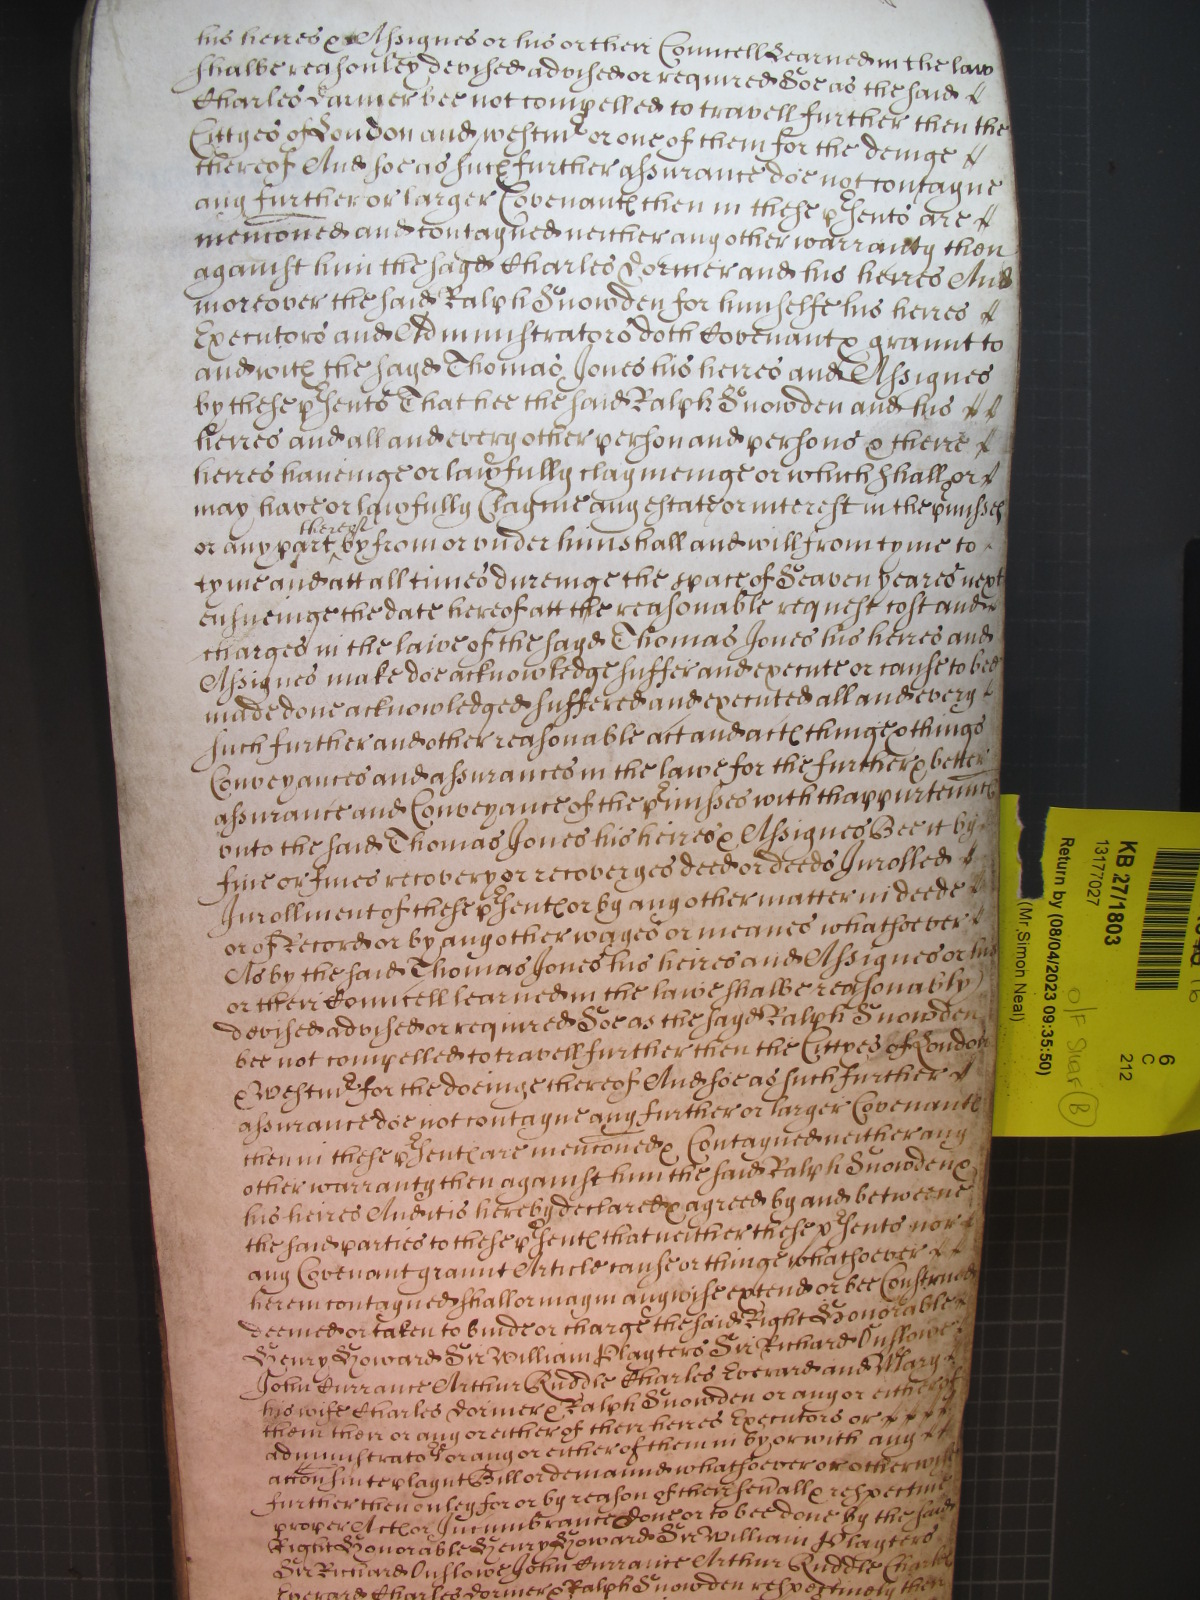 his heires & Assignes or his or their Councell Learned in the law
shalbe reasonbley devised advised or required Soe as the said
Charles Dormer bee not compelled to travell further then the
Cittyes of London and westmr or one of them for the doinge
thereof And soe as such further assurance doe not contayne
any further or larger Covenantes then in these psents are
menconed and contayned neither any other warranty then
against him the sayd Charles Dormer and his heires And
moreover the said Ralph Snowden for himselfe his heires
Executors and Administrators doth Covenant & graunt to
and with the sayd Thomas Jones his heires and Assignes
by these psents That hee the said Ralph Snowden and his
heires and all and every other person and persons & theire
heires haueinge or lawfully claymeinge or which shall or
may have or lawfully Clayme any estate or interest in the pmisses
or any part thereof by from or vnder him shall and will from tyme to
tyme and att all times dureinge the space of Seaven yeares next
ensueinge the date hereof att the reasonable request cost and
charges in the lawe of the sayd Thomas Jones his heires and
Assignes make doe acknowledge suffer and execute or cause to bee
made done acknowledged suffered and executed all and every
such further and other reasonable act and actes thinge & things
Conveyances and assurances in the lawe for the further & better
assurance and Conveyance of the pmisses with thappurtennces
vnto the said Thomas Jones his heires & Assignes Bee it by
fine or fines recovery or recoveryes deed or deeds Inrolled
Inrollment of these psentes or by any other matter in deede
or of Record or by any other wayes or meanes whatsoever
As by the said Thomas Jones his heires and Assignes or his
or their Councell learned in the lawe shalbe reasonably
devised advised or required Soe as the sayd Ralph Snowden
bee not compelled to travell further then the Cittyes of London
& Westmr for the doeinge thereof And soe as such further
assurance doe not contayne any further or larger Covenantes
then in these psentes are menconed & Contayned neither any
other warranty then against him the said Ralph Snowden &
his heires And it is hereby declared & agreed by and betweene
the said parties to these psentes that neither these psents nor
any Covenant graunt Article cause or thinge whatsoever
herein contayned shall or may in any wise extend or bee Construed
deemed or taken to binde or charge the said Right Honorable
Henry Howard Sir William Playters Sir Richard Onslowe
John Currance Arthur Ruddle Charles Everard and Mary
his wife Charles Dormer & Ralph Snowden or any or either of
them their or any or either of their heires Executors or
administrators or any or either of them in by or with any
accon suite playnt Bill or demaund whatsoever or otherwise
further then onley for or by reason of their seuall & respective
proper Act or Incumbrance done or to bee done by the said
Right Honorable Henry Howard Sir William Playters
Sir Richard Onslowe John Currance Arthur Ruddle Charles
Everard Charles Dormer & Ralph Snowden respectiuely then
KB 27/1803
13177027
Return by (08/04/2023 09:35:50)
(Mr Simon Neal)
6
C
212
B